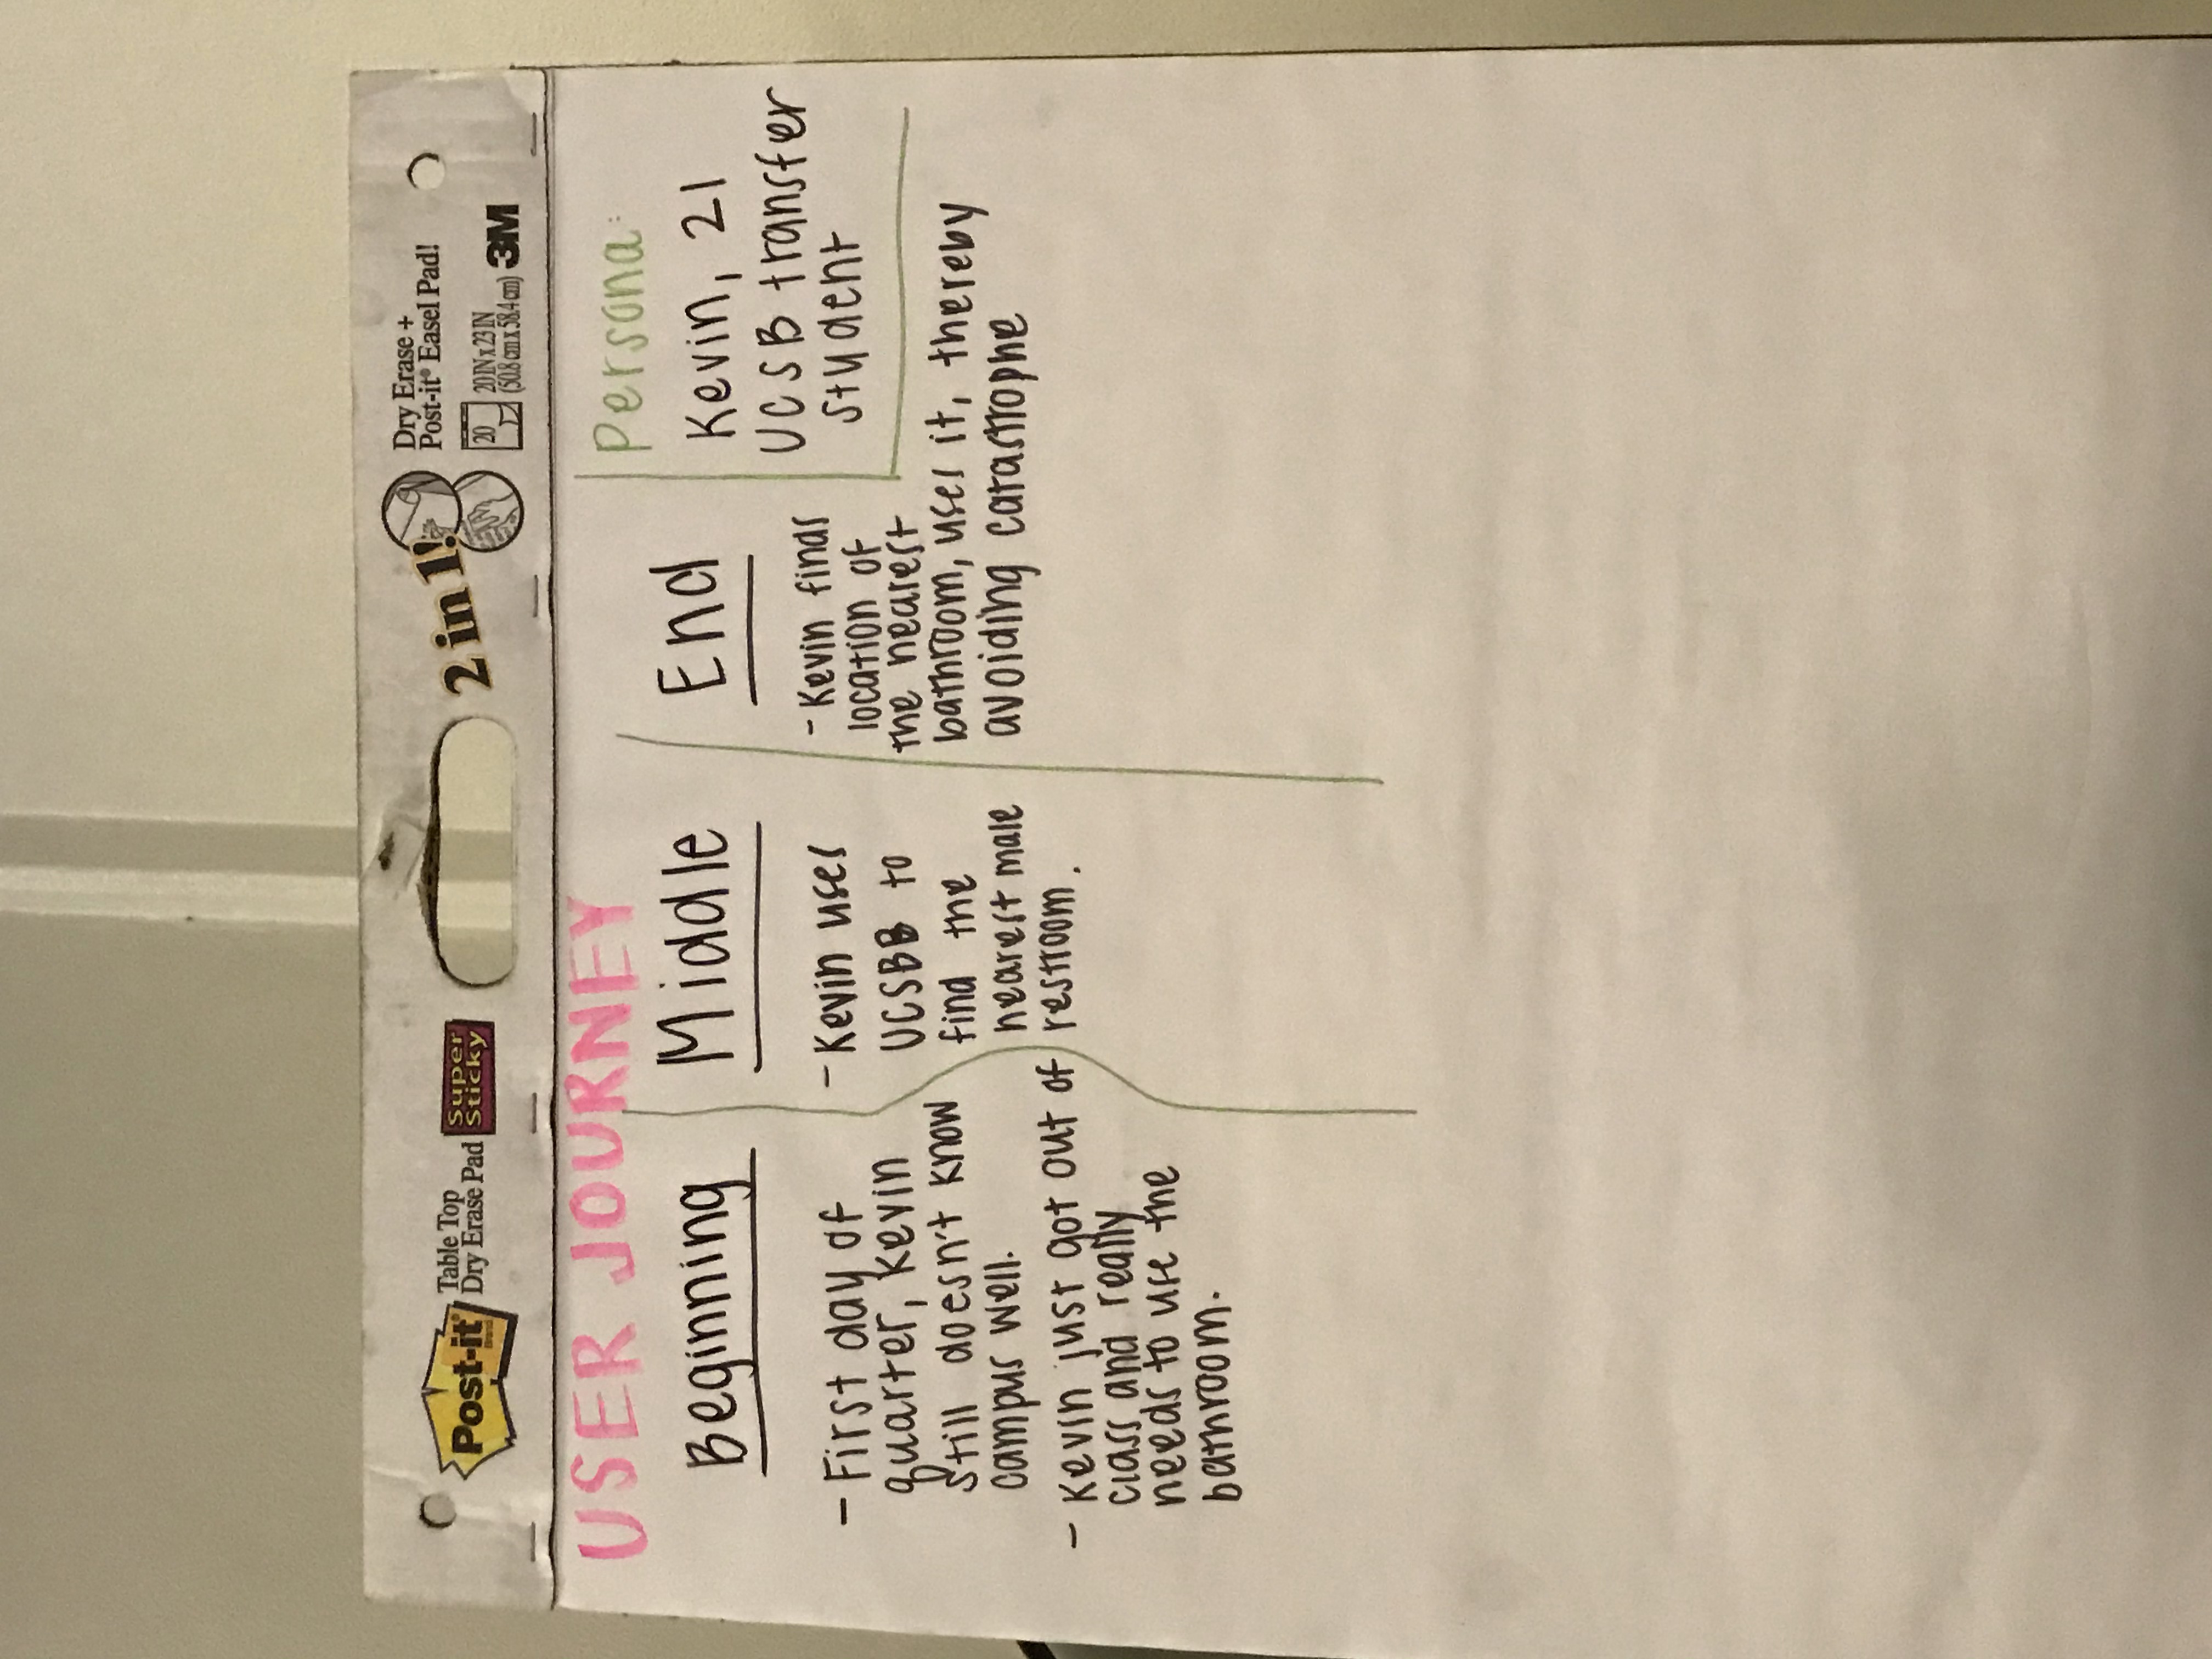 Post-it
Brand
Table Top
Dry Erase Pad
Super
Sticky
2 in 1!
Dry Erase +
Post-it® Easel Pad!
20
20 IN x 23 IN
(50.8 cm x 58.4 cm)
3M
USER JOURNEY
Beginning
- First day of
quarter, Kevin
still doesn't know
campus well.
- Kevin just got out of
class and really
needs to use the
bathroom.
Middle
- Kevin uses
UCSBB to
find the
nearest male
restroom.
End
- Kevin finds
location of
the nearest
bathroom, uses it, thereby
avoiding catastrophe
Persona:
Kevin, 21
UCSB transfer
student